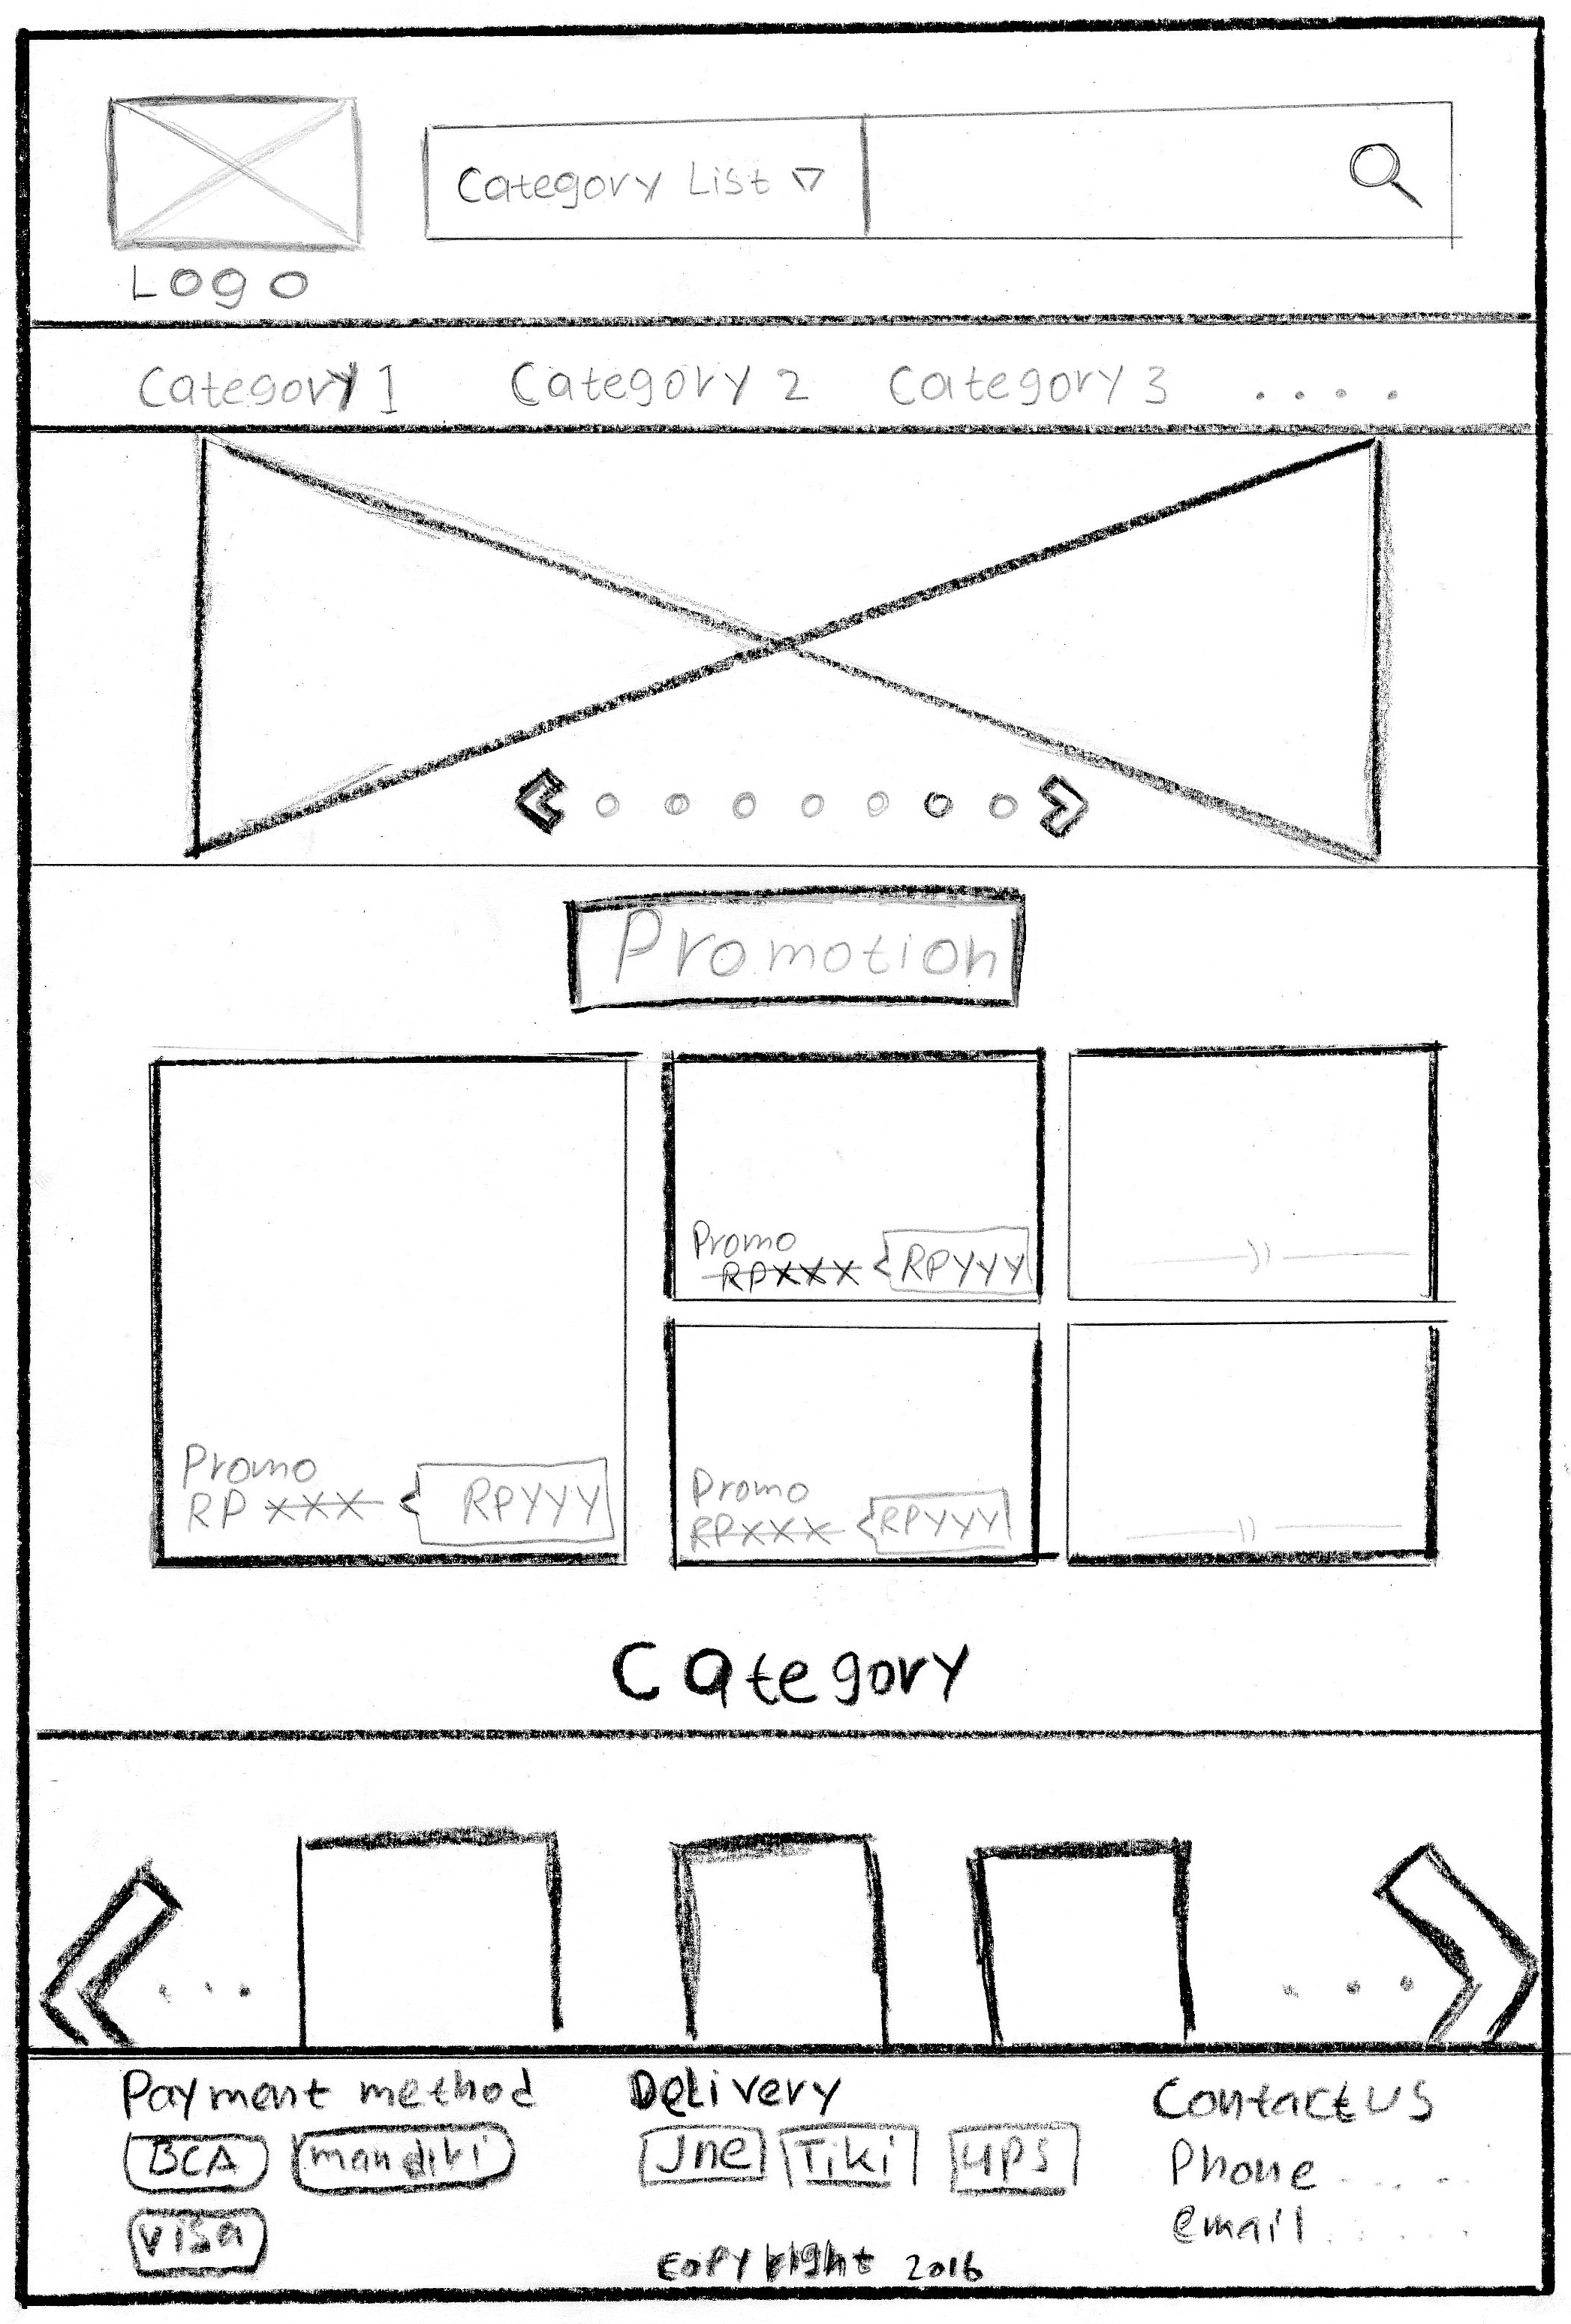 Category List ▽
Logo
Category 1 Category 2 Category 3 ....
Promotion
Promo
RPXXX RPYYY
Promo
RP XXX RPYYY
Promo
RPXXX RPYYY
Category
...
...
Payment method
BCA mandiri
visa
Delivery
Jne Tiki ups
Contact us
Phone .....
email .....
Copyright 2016